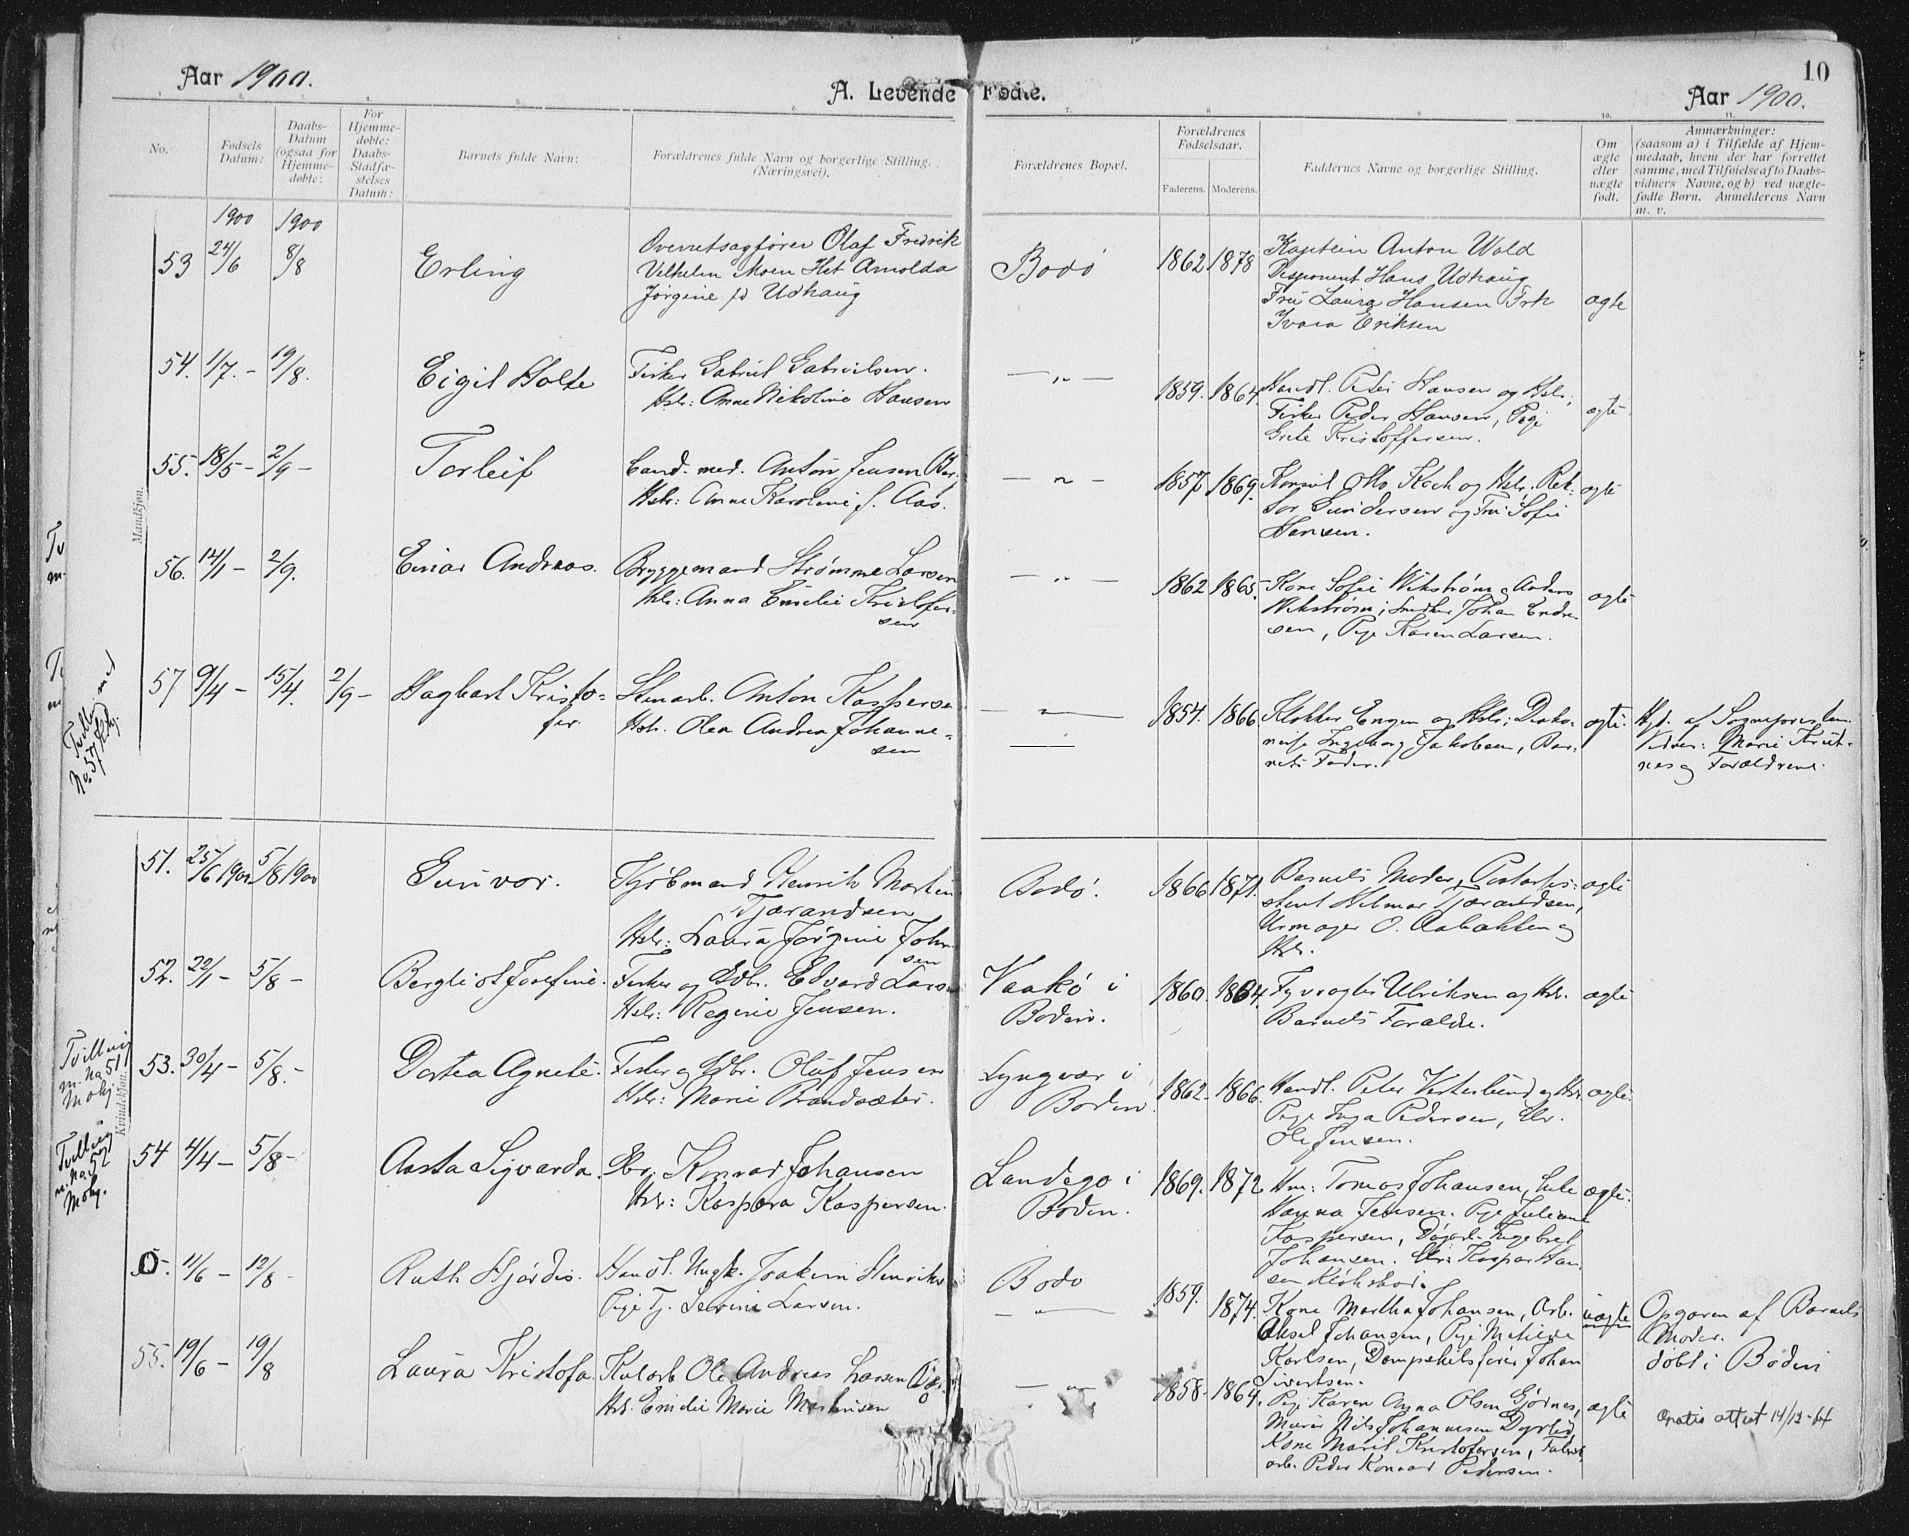 Aar 1900.
A. Levende Fødte.
Aar 1900.
10
No.
Fødsels Datum:
Daabs-Datum (ogsaa for Hjemme-døbte:
For Hjemme-døbte: Daabs-Stadfæ-stelses Datum:
Barnets fulde Navn:
Forældrenes fulde Navn og borgerlige Stilling. (Næringsvei).
Forældrenes Bopæl.
Forældrenes Fødselsaar.
Faderens. Moderens.
Faddernes Navne og borgerlige Stilling.
Om ægte eller uægte født.
Anmærkninger:
(saasom a) i Tilfælde af Hjem-
medaab, hvem der har forrettet
samme, med Tilføielse af to Daabs-
vidners Navne, og b) ved uægte-
fødte Børn. Anmelderens Navn
m. v.
Mandkjøn.
1900 1900
53 24/6 8/8 Erling
Overretsagfører Olaf Fredrik
Vilhelm Moen Hst Arnolda
Jørgine f. Udhaug
Bodø 1862 1878
Kaptein Anton Wold
Disponent Hans Udhaug
Fru Laura Hansen Frk
Ivara Eriksen
ægte
54. 1/7. – 19/8. Eigil Holte
Fisker Gabriel Gabrielsen.
Hstr: Anne Nikoline Hansen
— „ — 1859. 1864.
Handl. Peter Hansen og Hstr.,
Fisker Peder Hansen, Pige
Grete Kristoffersen.
ægte
55. 18/5 – 2/9 – Torleif
Cand. med. Anton Jensen
Hstr: Anne Karoline f. Aas.
— „ — 1857 1869.
Konsul Otto Koch og Hstr. Rek-
tor Gundersen og Fru Sofie
Hansen.
ægte
56. 12/1 – 2/9. Einar Andreas.
Bryggemand Strømme Larsen
Hstr: Anna Emelie Kristofer-
sen
— „ — 1862 1865.
Kone Sofie Wikstrøm, Anders
Wikstrøm, Snedker Johan Endre-
sen, Pige Karen Larsen.
ægte
57 9/4 – 15/4. 2/9 – Hagbart Kristo-
fer.
Stenarb. Anton Kaspersen
Hstr. Olea Andrea Johanne-
sen
— „ — 1854. 1866
Klokker Engen og Hstr; Diako-
nisse Ingeborg Jakobsen, Bar-
nets Fader.
ægte.
Hjd. af Sognepresten
Vidner: Marie
og Forældrene.
Tvilling med
No. 57
Kvindekjøn.
51. 25/6 1900 5/8 1900 Gunvor.
Kjøbmand Henrik Martin
Tjærandsen
Hstr: Laura Jørgine Johan-
sen
Bodø. 1866 1871.
Barnets Moder, Postassi-
stent Hilmar Tjærandsen,
Urmager O. Aabakken og
Hstr.
ægte
52. 22/1 – 5/8 – Bergliot Josefine.
Fisker og Gdbr. Edvard Larsen
Hstr: Regine Jensen.
Bodin. 1860. 1864.
Fyrvogter Ulriksen og Hstr.
Barnets Forældre.
ægte
Tvilling
m. No 51
Mkj.
53. 30/4 – 5/8. – Dortea Agnete.
Fisker og Gdbr. Oluf Jensen
Hstr: Marie Brandsæter.
Lyngvær i
Bodin. 1862. 1866.
Handl. Peter Vesterlund og Hstr.
Pige Inga Pedersen, Elv.
Ole Jensen.
ægte.
Tvilling
m. No 52
Mkj.
54 4/4 – 5/8 – Aasta Sigvarda.
Gbr. Konrad Johansen
Hstr: Kaspara Kaspersen.
Landego i
Bodin. 1869. 1872
Hm: Tomas Johansen, Enke
Hanna Jensen. Pige Juliane
Kaspersen, Ingebret
Johansen. Kaspar Han-
sen
ægte.
11/6 – 12/8 Ruth Hjørdis.
Handl. Ungk. Joakim Henriks
Pige Tj. Severine Larsen.
Bodø
— „ — 1859. 1874.
Kone Martha Johansen, Arb.
Aksel Johansen, Pige Matilde
Karlsen, Dampskibsfører Johan
Sivertsen.
uægte
Opgaven af Barnets
Moder.
døbt i Bodin
55. 19/6 – 19/8 Laura Kristofa
Kularb Ole Andreas Larsen
Hst. Emelie Marie Martinsen
— „ — 1858. 1864.
Pige Karen Anna Olsen Gjørnes,
Murer Nils Johannesen
Kone Marit Kristofersen, Fabrik-
arb. Peder Konrad Pedersen.
ægte
Gratis attest 14/12-64